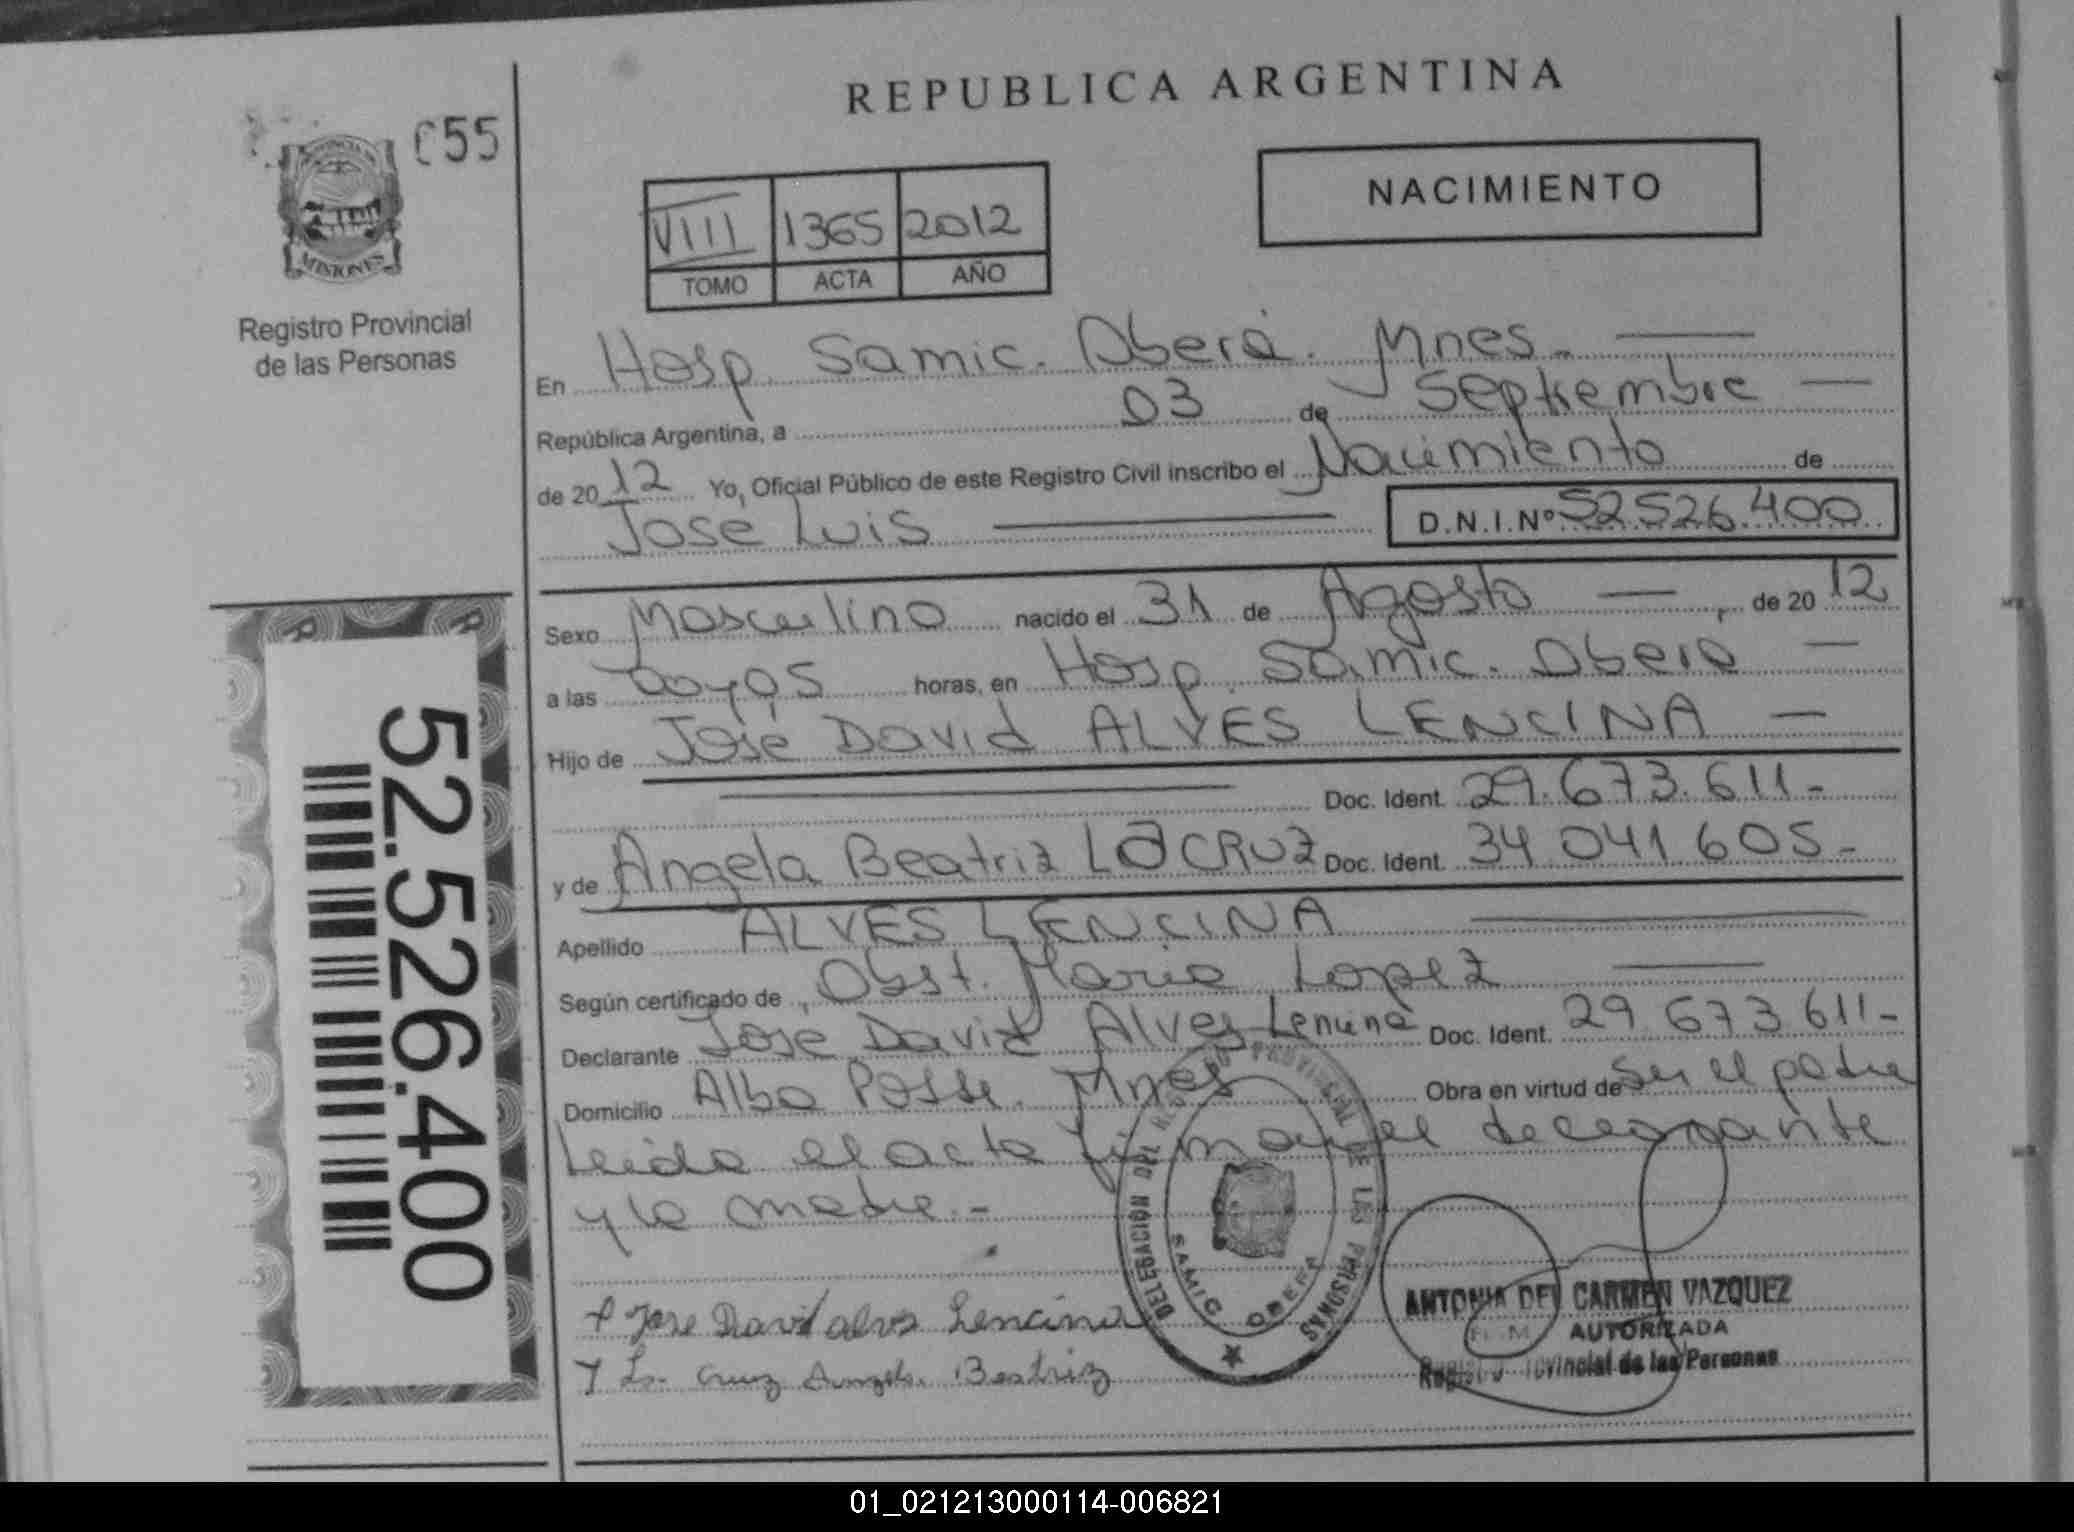 REPUBLICA ARGENTINA
055
MISIONES
Registro Provincial
de las Personas
VIII 1365 2012
TOMO ACTA AÑO
NACIMIENTO
En Hosp. Samic. Oberá. Mnes.
República Argentina, a 03 de Septiembre
de 20 12 Yo, Oficial Público de este Registro Civil inscribo el Nacimiento de
José Luis D.N.I.Nº 52526.400
Sexo Masculino nacido el 31 de Agosto , de 20 12
a las horas, en Hosp. Samic. Obera
Hijo de José David ALVES LENCINA
Doc. Ident. 29.673.611-
y de Angela Beatriz La CRUZ Doc. Ident. 34 041 605-
Apellido ALVES LENCINA
Según certificado de Obst. Maria Lopez
Declarante José David Alves Lencina Doc. Ident. 29 673 611-
Domicilio Alba Posse. Mnes Obra en virtud de ser el padre
Leida el acta firman el declarante
y la madre.-
Jose David alves Lencina
La Cruz Angela Beatriz
DELEGACIÓN DEL REGISTRO PROVINCIAL DE LAS PERSONAS
SAMIC OBERA
ANTONIA DEL CARMEN VAZQUEZ
AUTORIZADA
Registro Provincial de las Personas
52.526.400
01_021213000114-006821